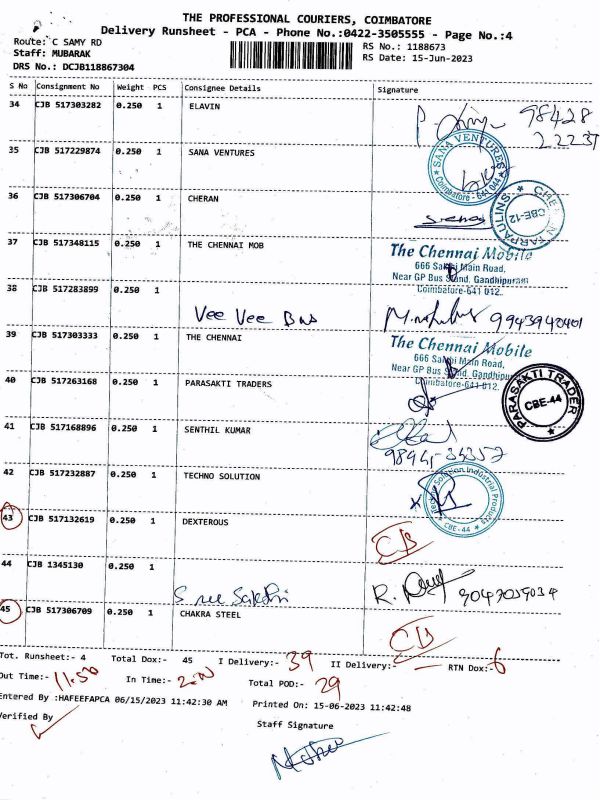 THE PROFESSIONAL COURIERS, COIMBATORE
Delivery Runsheet - PCA - Phone No.:0422-3505555 - Page No.:4
Route: C SAMY RD
RS No.: 1188673
Staff: MUBARAK
RS Date: 15-Jun-2023
DRS No.: DCJB118867304
S No Consignment No Weight PCS Consignee Details Signature
34 CJB 517303282 0.250 1 ELAVIN 98428
22237
35 CJB 517229874 0.250 1 SANA VENTURES
SANA VENTURES Coimbatore - 641 044
36 CJB 517306704 0.250 1 CHERAN
TARPAULINS CBE-12
37 CJB 517348115 0.250 1 THE CHENNAI MOB
The Chennai Mobile
666 Main Road,
Near GP Bus Stand, Gandhipuram
Coimbatore-641 012.
38 CJB 517283899 0.250 1
Vee Vee Bus
39 CJB 517303333 0.250 1 THE CHENNAI
The Chennai Mobile
666 Main Road,
Near GP Bus Stand,
Coimbatore-641-012.
40 CJB 517263168 0.250 1 PARASAKTI TRADERS
PARASAKTI TRADER CBE-44
41 CJB 517168896 0.250 1 SENTHIL KUMAR
42 CJB 517232887 0.250 1 TECHNO SOLUTION
Solution Industrial Products CBE-44
43 CJB 517132619 0.250 1 DEXTEROUS
44 CJB 1345130 0.250 1
Sree Sakthi
45 CJB 517306709 0.250 1 CHAKRA STEEL
Tot. Runsheet:- 4 Total Dox:- 45 I Delivery:- 39 II Delivery:- RTN Dox:- 6
Out Time:- 11.50 In Time:- Total POD:- 29
Entered By :HAFEEFAPCA 06/15/2023 11:42:30 AM Printed On: 15-06-2023 11:42:48
Verified By
Staff Signature